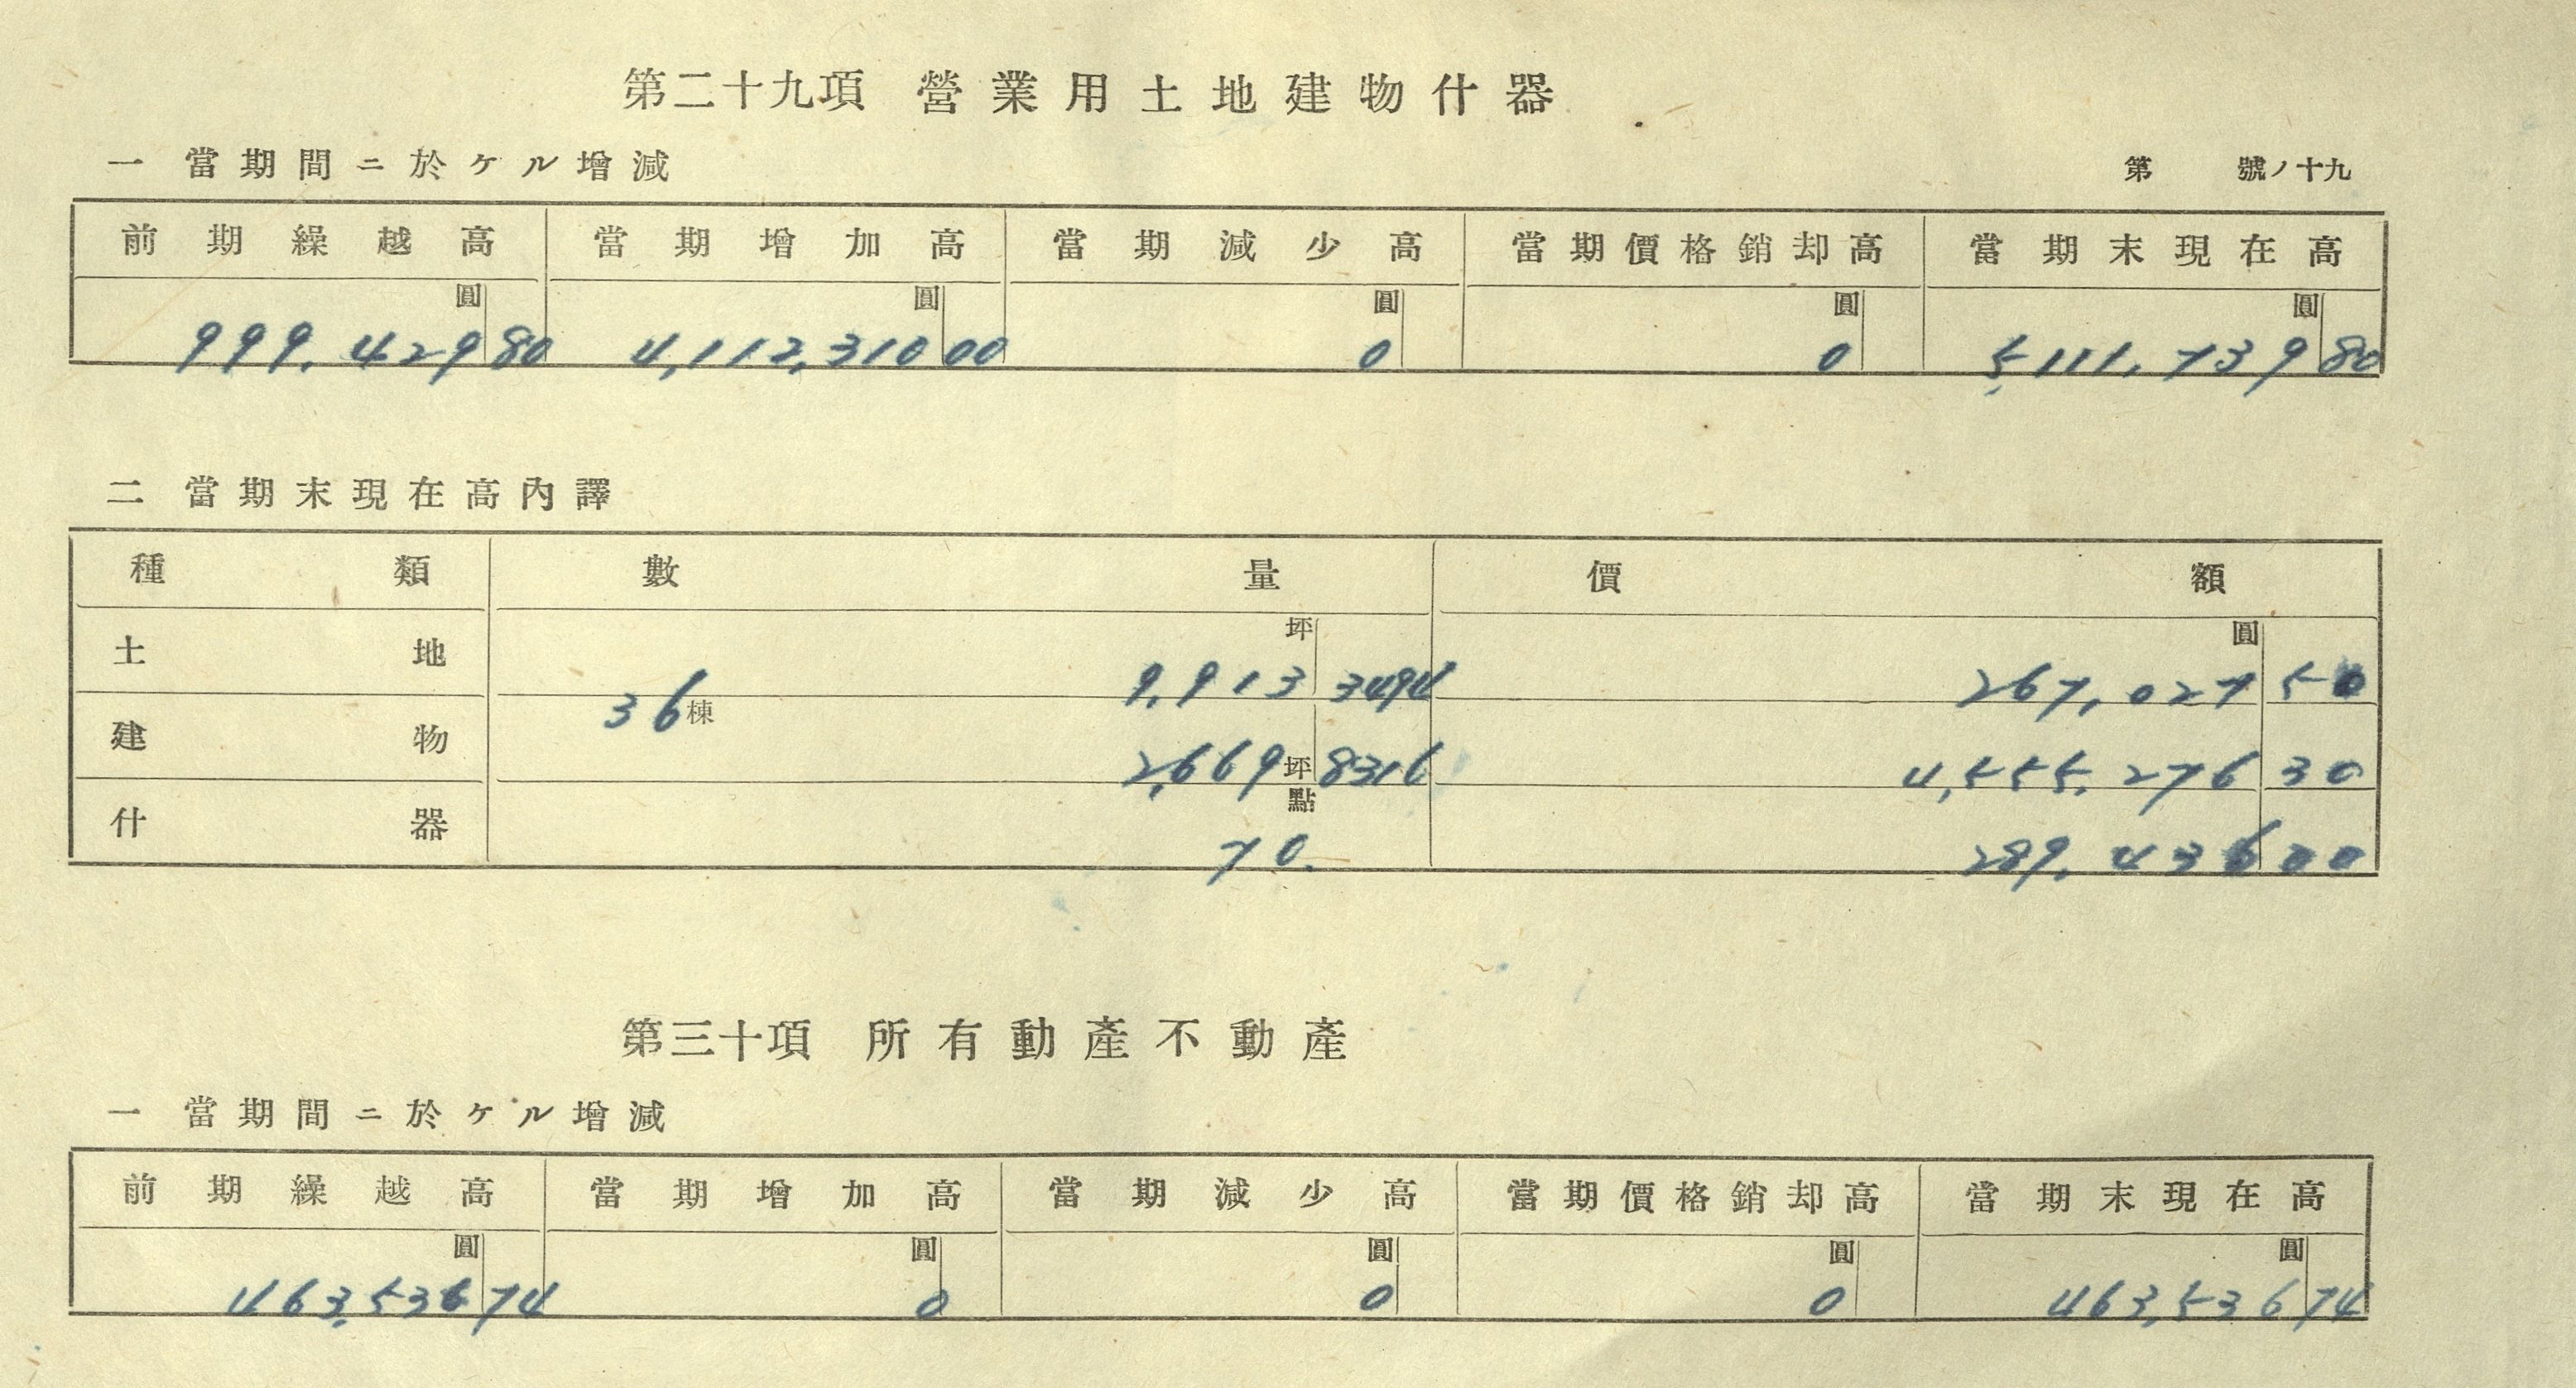 第二十九項 營業用土地建物什器
一 當期間ニ於ケル增減
第 號ノ十九
前期繰越高 當期增加高 當期減少高 當期價格銷却高 當期末現在高
圓 圓 圓 圓 圓
999,429 80 4,112,310 00 0 0 5,111,739 80
二 當期末現在高內譯
種類 數量 價額
土地 9,913坪 3494 267,027圓 50
建物 36棟 2,669坪 8316 4,555,276 30
什器 70.點 289,436 00
第三十項 所有動產不動產
一 當期間ニ於ケル增減
前期繰越高 當期增加高 當期減少高 當期價格銷却高 當期末現在高
圓 圓 圓 圓 圓
463,536 74 0 0 0 463,536 74